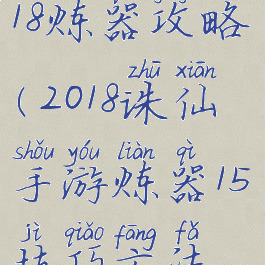 18炼器攻略
zhū xiān
(2018诛仙
shǒu yóu liàn qì
手游炼器15
jì qiǎo fāng fǎ
技巧方法